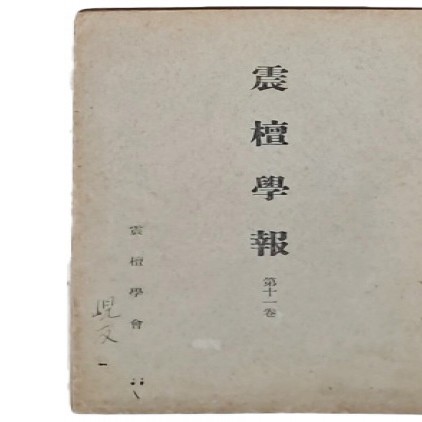 震檀學報
第十一卷
震檀學會